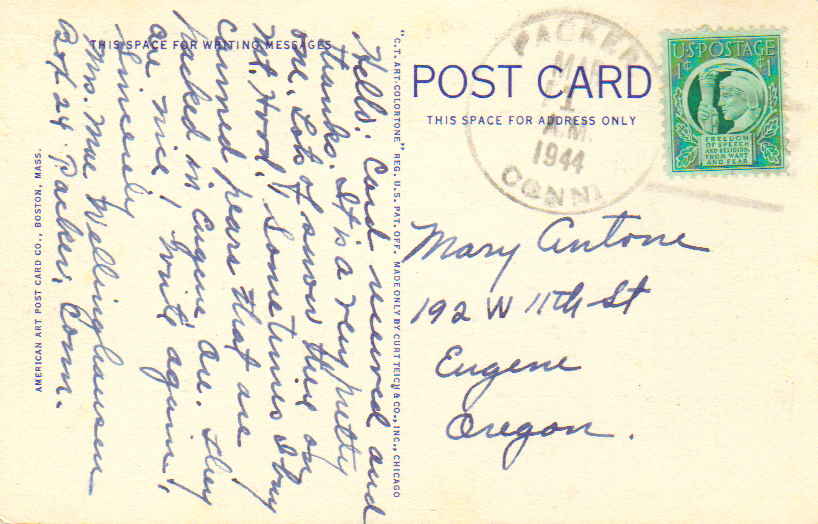 THIS SPACE FOR WRITING MESSAGES
Hello! Card received and
thanks. It is a very pretty
one. Lots of snow there on
Mt. Hood. Sometimes I buy
canned pears that are
packed in Eugene Ore. They
are nice! Write again!
Sincerely
Mrs. Mae Wellinghausen
Box 24 Packer, Conn.
AMERICAN ART POST CARD CO., BOSTON, MASS.
"C.T. ART-COLORTONE" REG. U.S. PAT. OFF. MADE ONLY BY CURT TEICH & CO., INC., CHICAGO
POST CARD
THIS SPACE FOR ADDRESS ONLY
PACKER
MAR
1
A.M.
1944
CONN.
U·S·POSTAGE
1¢ ¢1
FREEDOM
OF SPEECH
AND RELIGION,
FROM WANT
AND FEAR
Mary Antone
192 W 11th St
Eugene
Oregon.